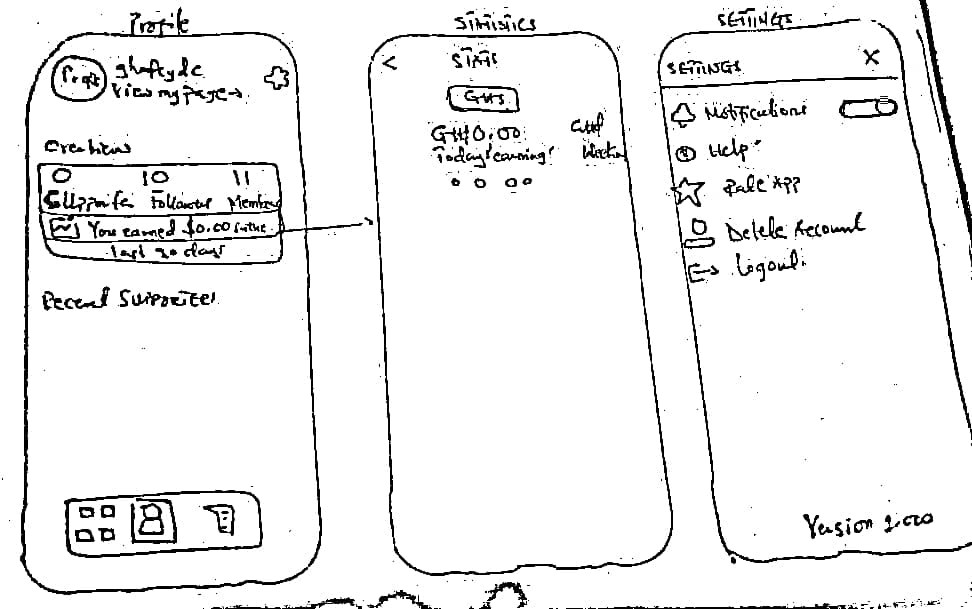 Profile
View my page
Creations
0 10 11
Followers Members
You earned $0.00 in the
last 30 days
Recent Supporter
STATISTICS
<
STATS
GHS
GH0.00
Today's earning
SETTINGS
SETTINGS X
Notifications
Help
Rate App
Delete Account
Logout
Version 2.000